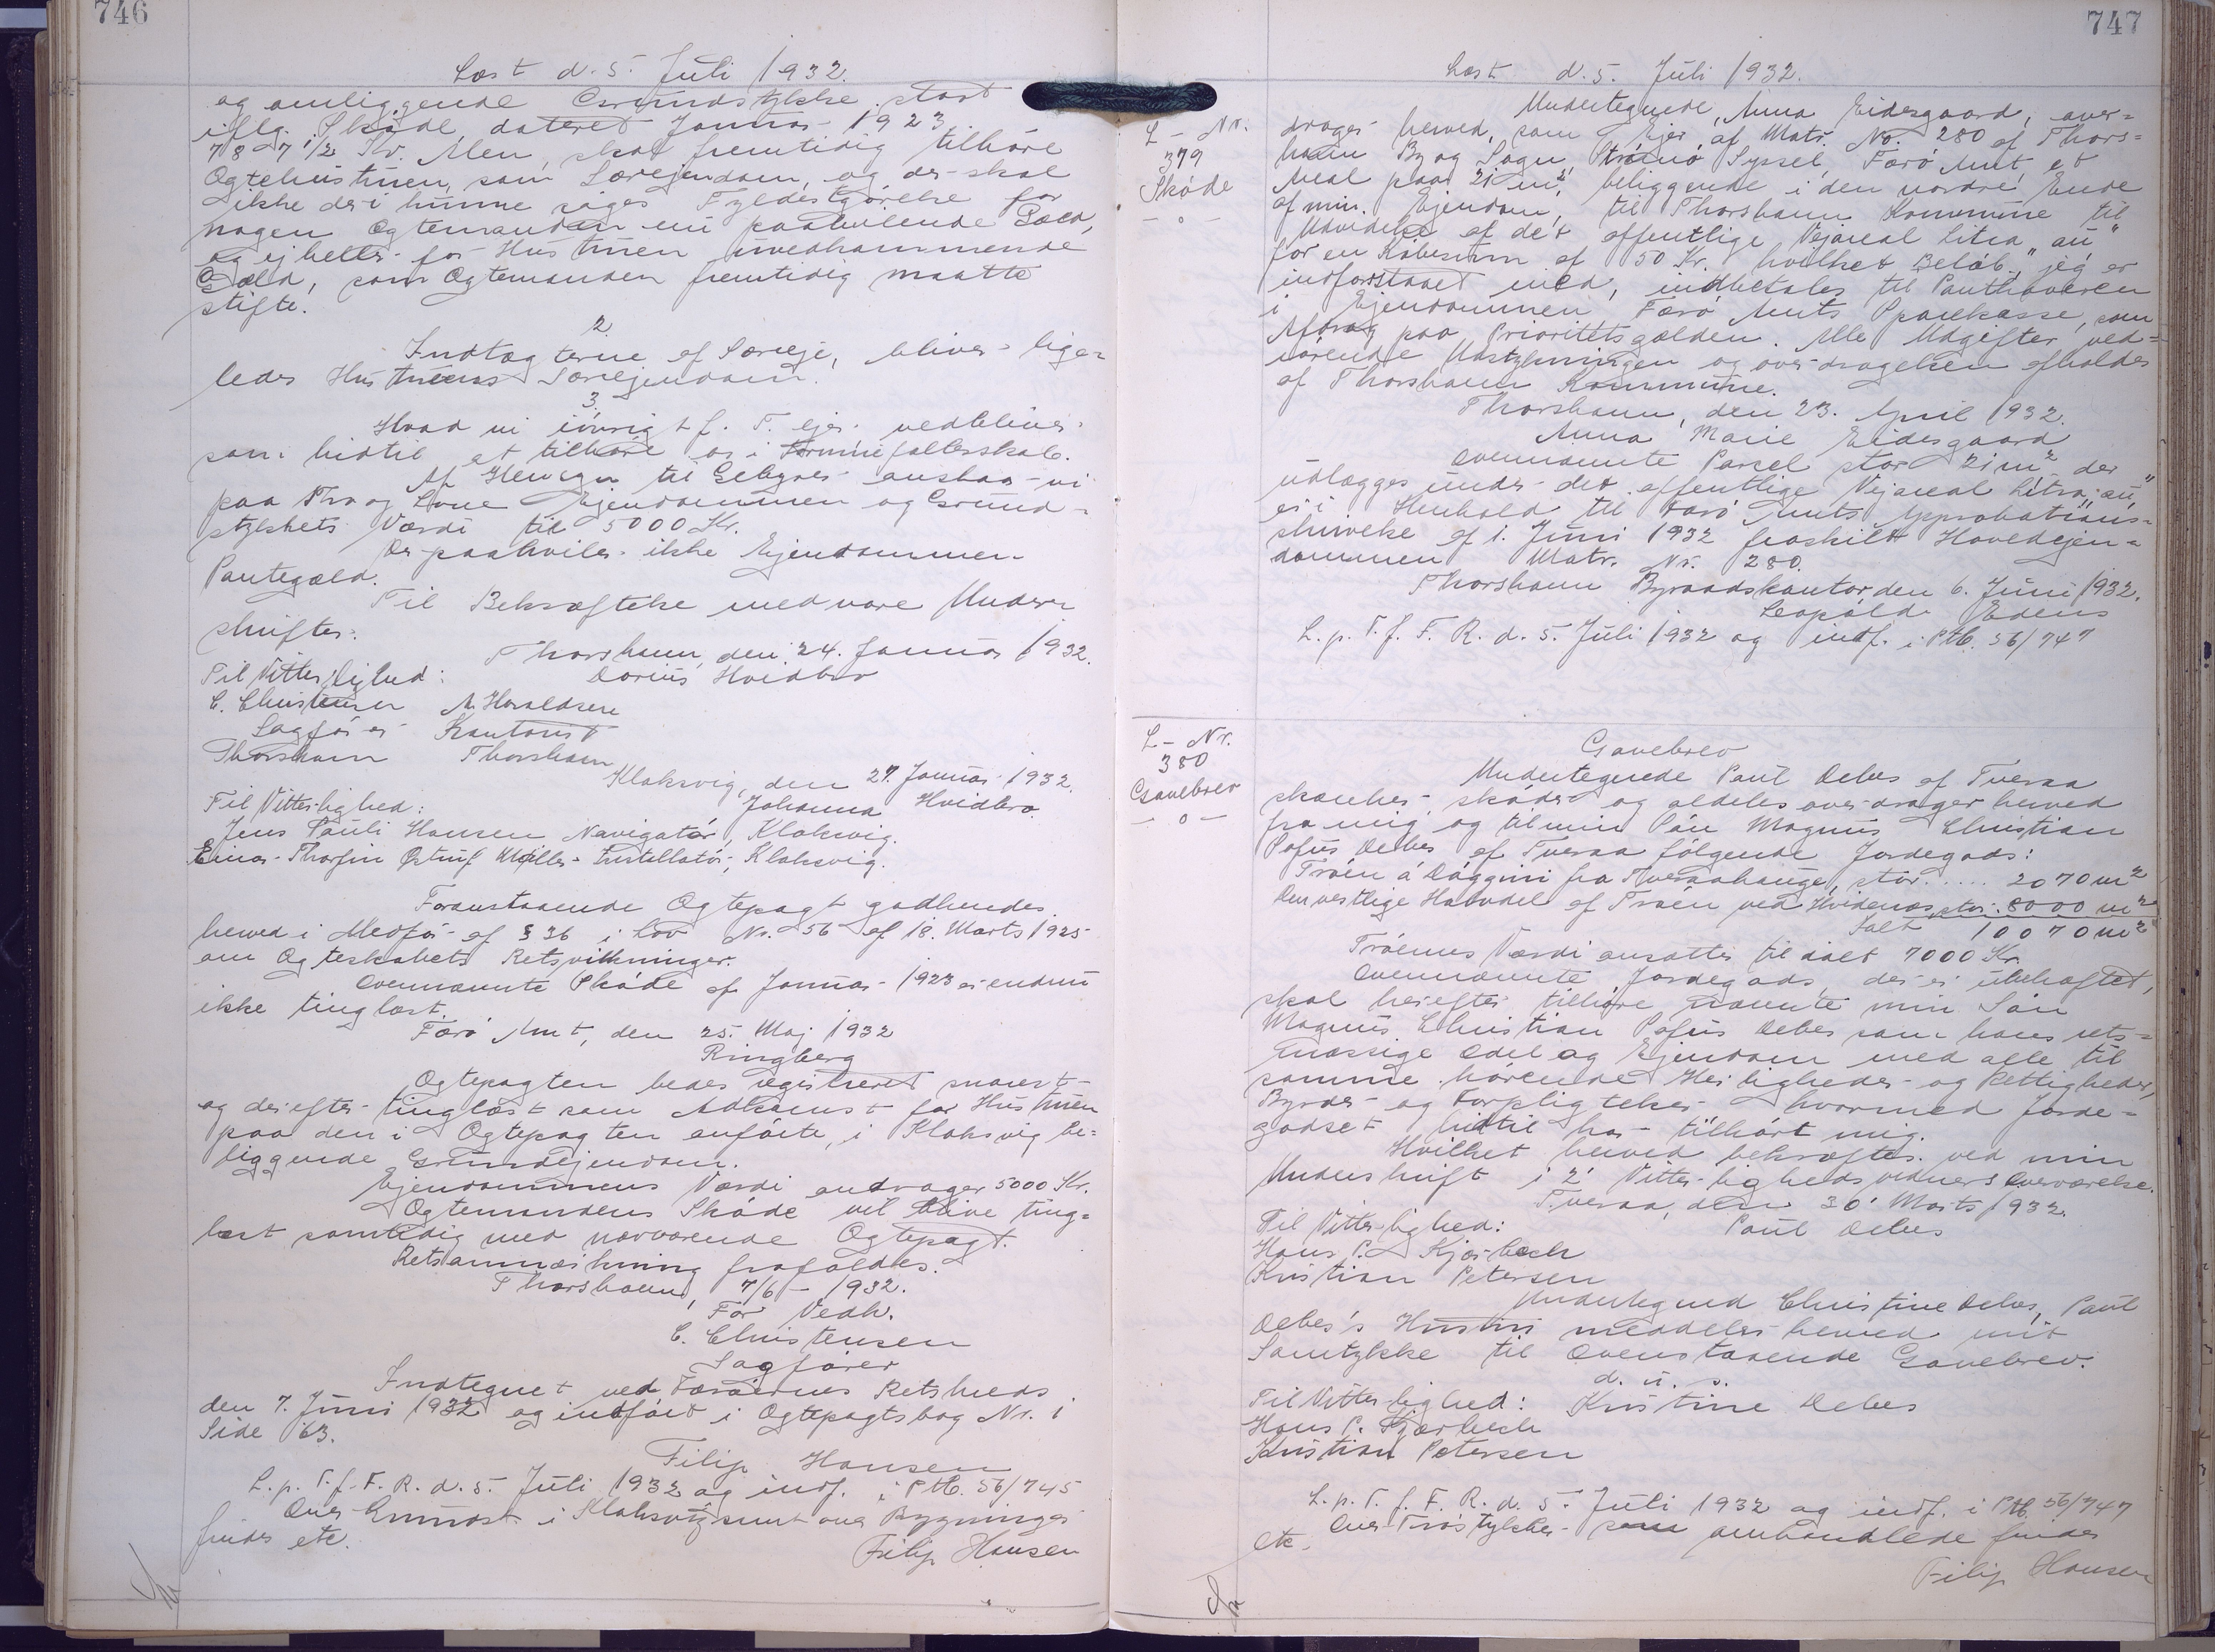 746
Læst d. 5. Juli 1932.
og omliggende Grundstykke stort
iflg. Skøde dateret Januar 1923
787 1/2 Kv. Alen, skal fremtidig tilhøre
Ægtehustruen, som Særejendom, og der skal
ikke deri kunne søges Fyldestgørelse for
nogen Ægtemanden nu paahvilende Gæld,
og ej heller for Hustruen uvedkommende
Gæld, som Ægtemanden fremtidig maatte
stifte.
2
Indtægterne af Særeje, bliver lige-
ledes Hustruens Særejendom.
3.
Hvad vi iøvrigt f. T. ejer vedbliver
som hidtil at tilhøre os i Formuefællesskab.
Af Hensyn til Gebyrer anslaar vi
paa Tro og Love Ejendommen og Grund-
stykkets Værdi til 5000 Kr.
Der paahviler ikke Ejendommen
Pantegæld.
Til Bekræftelse med vore Under-
skrifter.
Thorshavn, den 24. Januar 1932.
Til Vitterlighed: Dorius Hvidbro
C. Christensen M. Haraldsen
Sagfører Kontorist
Thorshavn Thorshavn
Klaksvig, den 27. Januar 1932.
Til Vitterlighed: Johanna Hvidbro.
Jens Pauli Hansen Navigatør, Klaksvig.
Einar Thorfin Østrup Møller Installatør, Klaksvig.
Foranstaaende Ægtepagt godkendes
herved i Medfør af § 36 i Lov Nr. 56 af 18. Marts 1925
om Ægteskabets Retsvirkninger.
Ovennævnte Skøde af Januar 1923 er endnu
ikke tinglæst.
Færø Amt, den 25. Maj 1932
Ringberg
Ægtepagten bedes registreret snarest
og derefter tinglæst som Adkomst for Hustruen
paa den i Ægtepagten anførte, i Klaksvig be-
liggende Grundejendom.
Ejendommens Værdi andrager 5000 Kr.
Ægtemandens Skøde vil blive ting-
læst samtidig med nærværende Ægtepagt.
Retsanmærkning frafaldes.
Thorshavn, 7/6 - 1932.
For Vedk.
C. Christensen
Sagfører
Indtegnet ved Færøernes Retskreds
den 7. Juni 1932 og indført i Ægtepagtsbog Nr. 1
Side 63.
Filip Hansen
L. p. T. f. F. R. d. 5. Juli 1932 og indf. i Ptb. 56/745
Over Grunden i Klaksvig samt over Bygninger
findes etc.
Filip Hansen
747
Læst d. 5. Juli 1932.
L - Nr.
379
Skøde
- o -
Undertegnede, Anna Eidesgaard, over-
drager herved, som Ejer af Matr. No. 280 af Thors-
havn By og Sogn, Strømø Syssel, Færø Amt, et
Areal paa 21 m², beliggende i den nordre Ende
af min Ejendom, til Thorshavn Kommune til
Udvidelse af det offentlige Vejareal Litra "aú"
for en Købesum af 50 Kr. hvilket Beløb, jeg er
indforstaaet med, indbetales til Panthaveren
i Ejendommen Færø Amts Sparekasse, som
Afdrag paa Prioritetsgælden. Alle Udgifter ved-
rørende Udstykningen og overdragelsen afholdes
af Thorshavn Kommune.
Thorshavn, den 23. April 1932.
Anna Marie Eidesgaard
Ovennævnte Parcel stor 21 m² der
udlægges under det offentlige Vejareal Litra "aú"
er i Henhold til Færø Amts Approbations-
skrivelse af 1. Juni 1932 fraskilt Hovedejen-
dommen Matr. Nr. 280.
Thorshavn Byraadskontor, den 6. Juni 1932.
Leopold Edens
L. p. T. f. F. R. d. 5. Juli 1932 og indf. i Ptb. 56/747
L - Nr.
380
Gavebrev
- o -
Gavebrev
Undertegnede Paul Debes af Tveraa
skænker, skøder og aldeles overdrager herved
fra mig og til min Søn Magnus Christian
Sofus Debes af Tveraa følgende Jordegods:
Trøen á Dággini fra Tveraahauge, stor ..... 2070 m²
Den vestlige Halvdel af Trøen ved Hvidenæs, stor: 8000 m²
Ialt 10070 m²
Trøernes Værdi ansættes til ialt 7000 Kr.
Ovennævnte Jordegods, der er ubehæftet,
skal herefter tilhøre nævnte min Søn
Magnus Christian Sofus Debes som hans rets-
mæssige Odel og Ejendom med alle til
samme hørende Herligheder og Rettigheder,
Byrder og Forpligtelser hvormed Jorde-
godset hidtil har tilhørt mig.
Hvilket herved bekræftes ved min
Underskrift i 2 Vitterlighedsvidners Overværelse.
Tveraa, den 30' Marts 1932.
Til Vitterlighed: Paul Debes
Hans P. Kjærbech
Kristian Petersen
Undertegned Christine Debes, Paul
Debes's Hustru meddeler herved mit
Samtykke til Ovenstaaende Gavebrev.
d. u. s.
Til Vitterlighed: Kristine Debes
Hans P. Kjærbech
Kristian Petersen
L. p. T. f. F. R. d. 5. Juli 1932 og indf. i Ptb. 56/747
Over Trøstykker som omhandlede findes
etc.
Filip Hansen